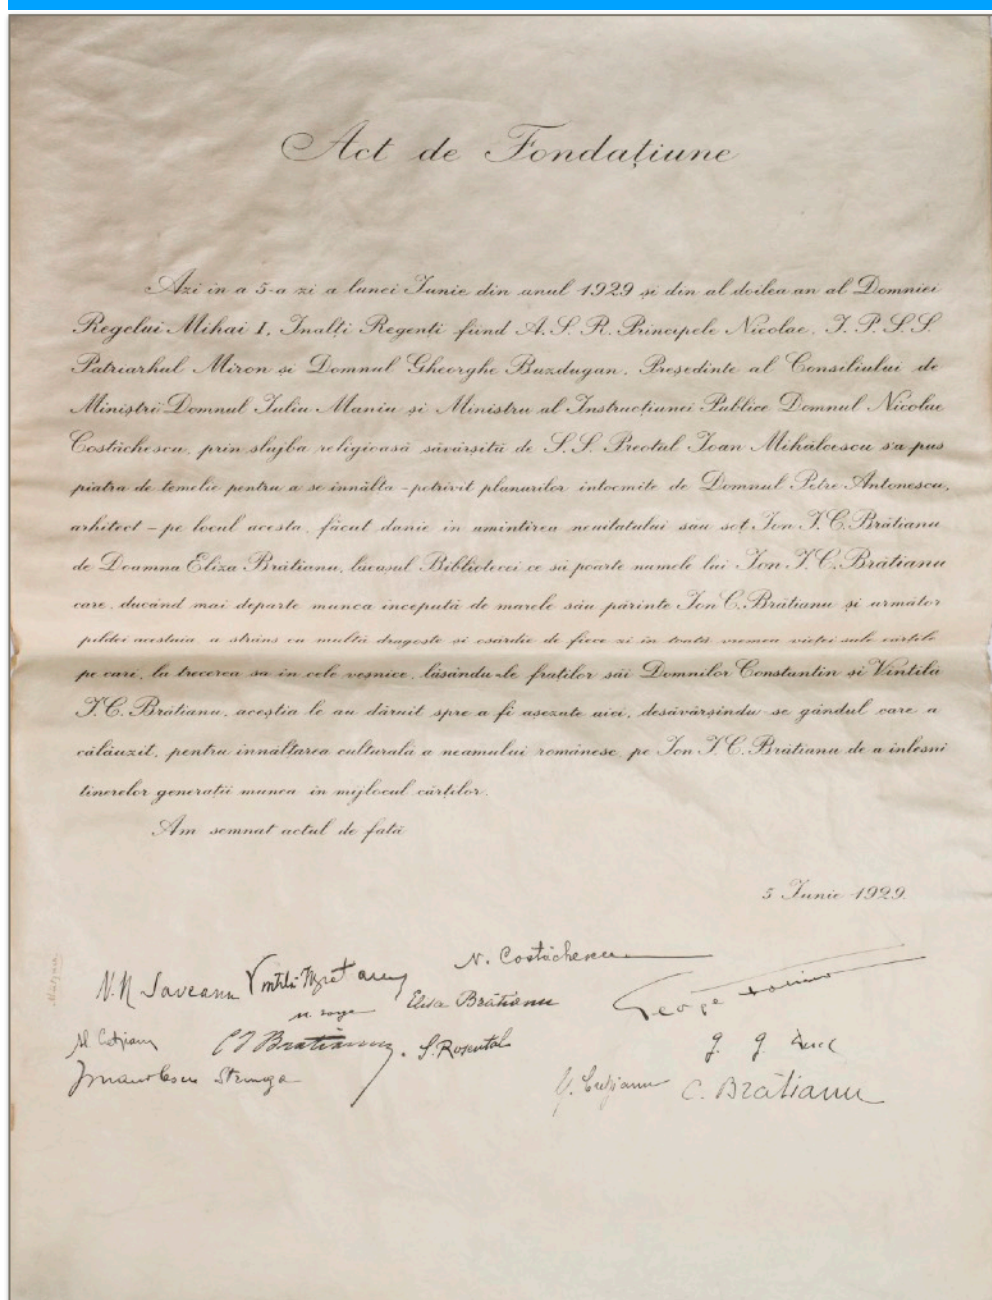 Act de Fondațiune
Azi in a 5-a zi a lunei Iunie din anul 1929 și din al doilea an al Domniei
Regelui Mihai I, Inalți Regenți fiind A. S. R. Principele Nicolae, I. P. S. S.
Patriarhul Miron și Domnul Gheorghe Buzdugan, Președinte al Consiliului de
Miniștri Domnul Iuliu Maniu și Ministru al Instrucțiunei Publice Domnul Nicolae
Costăchescu, prin slujba religioasă săvârșită de S. S. Preotul Ioan Mihălcescu s'a pus
piatra de temelie pentru a se innălța - potrivit planurilor intocmite de Domnul Petre Antonescu,
arhitect - pe locul acesta, făcut danie in amintirea neuitatului său soț Ion I. C. Brătianu
de Doamna Eliza Brătianu, lăcașul Bibliotecei ce să poarte numele lui Ion I. C. Brătianu
care, ducând mai departe munca incepută de marele său părinte Ion C. Brătianu și următor
pildei acestuia, a strâns cu multă dragoste și osârdie de fiece zi in toată vremea vieței sale cărțile
pe cari, la trecerea sa in cele veșnice, lăsându-le fraților săi Domnilor Constantin și Vintilă
I. C. Brătianu, aceștia le au dăruit spre a fi așezate aici, desăvârșindu-se gândul care a
călăuzit, pentru innălțarea culturală a neamului românesc, pe Ion I. C. Brătianu de a inlesni
tinerelor generații munca in mijlocul cărților.
Am semnat actul de față
5 Iunie 1929.
N. N. Saveanu N. Costăchescu
Elisa Brătianu George
C I Bratianu S. Rosental
C. Brătianu